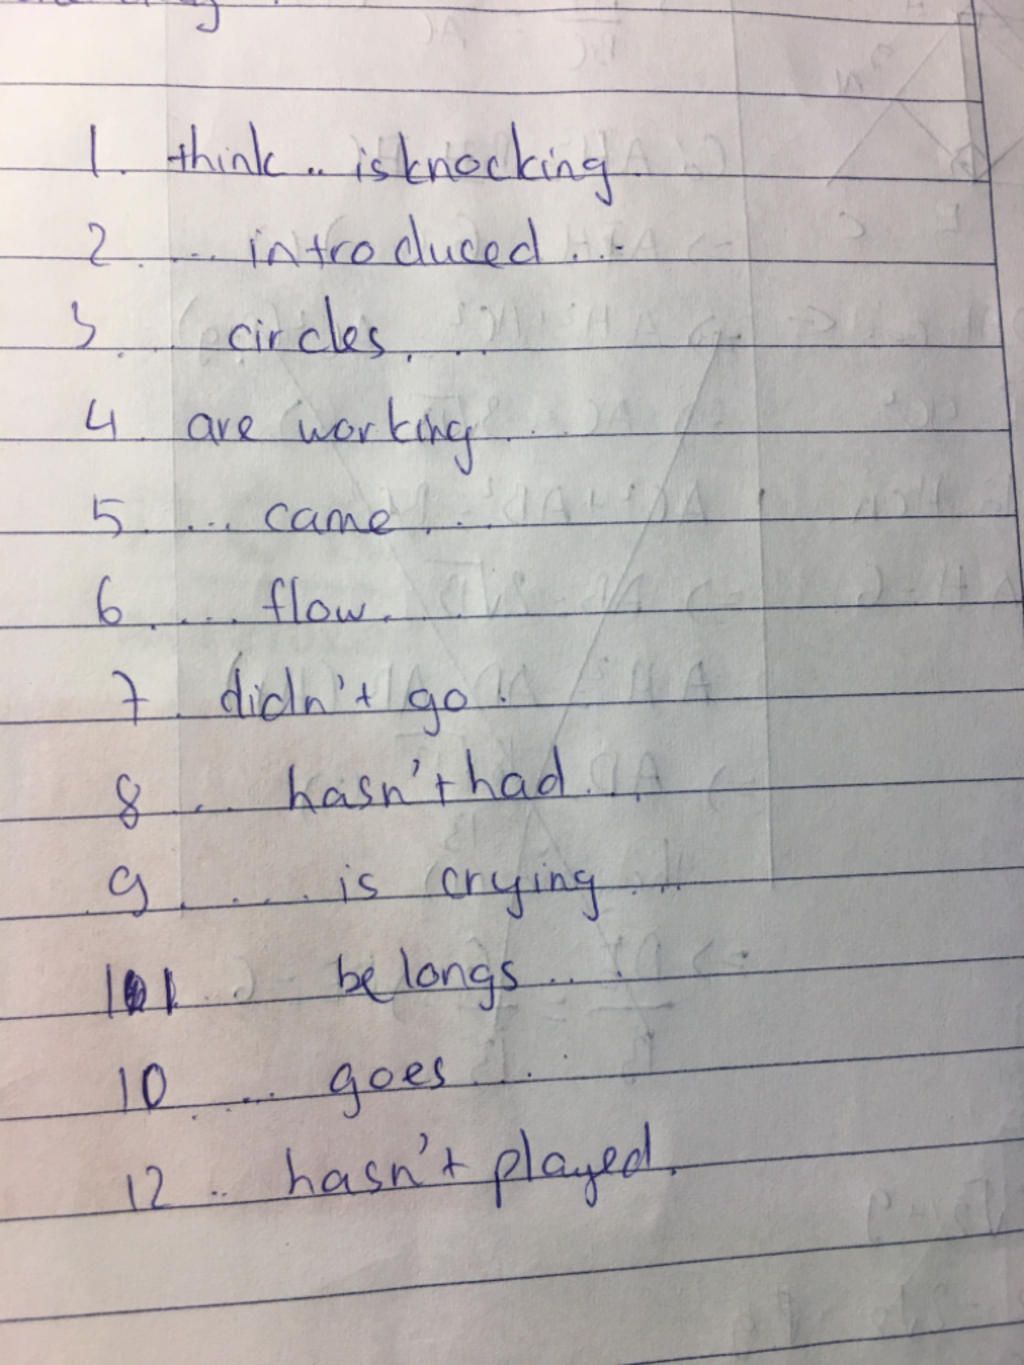 1. think .. is knocking.
2. ... introduced ...
3. .. circles. ..
4. are working ...
5. ... came ...
6. .... flow.
7. didn't go.
8 ... hasn't had ..
9 .... is crying ...
11 belongs ...
10 .... goes ...
12 .. hasn't played.